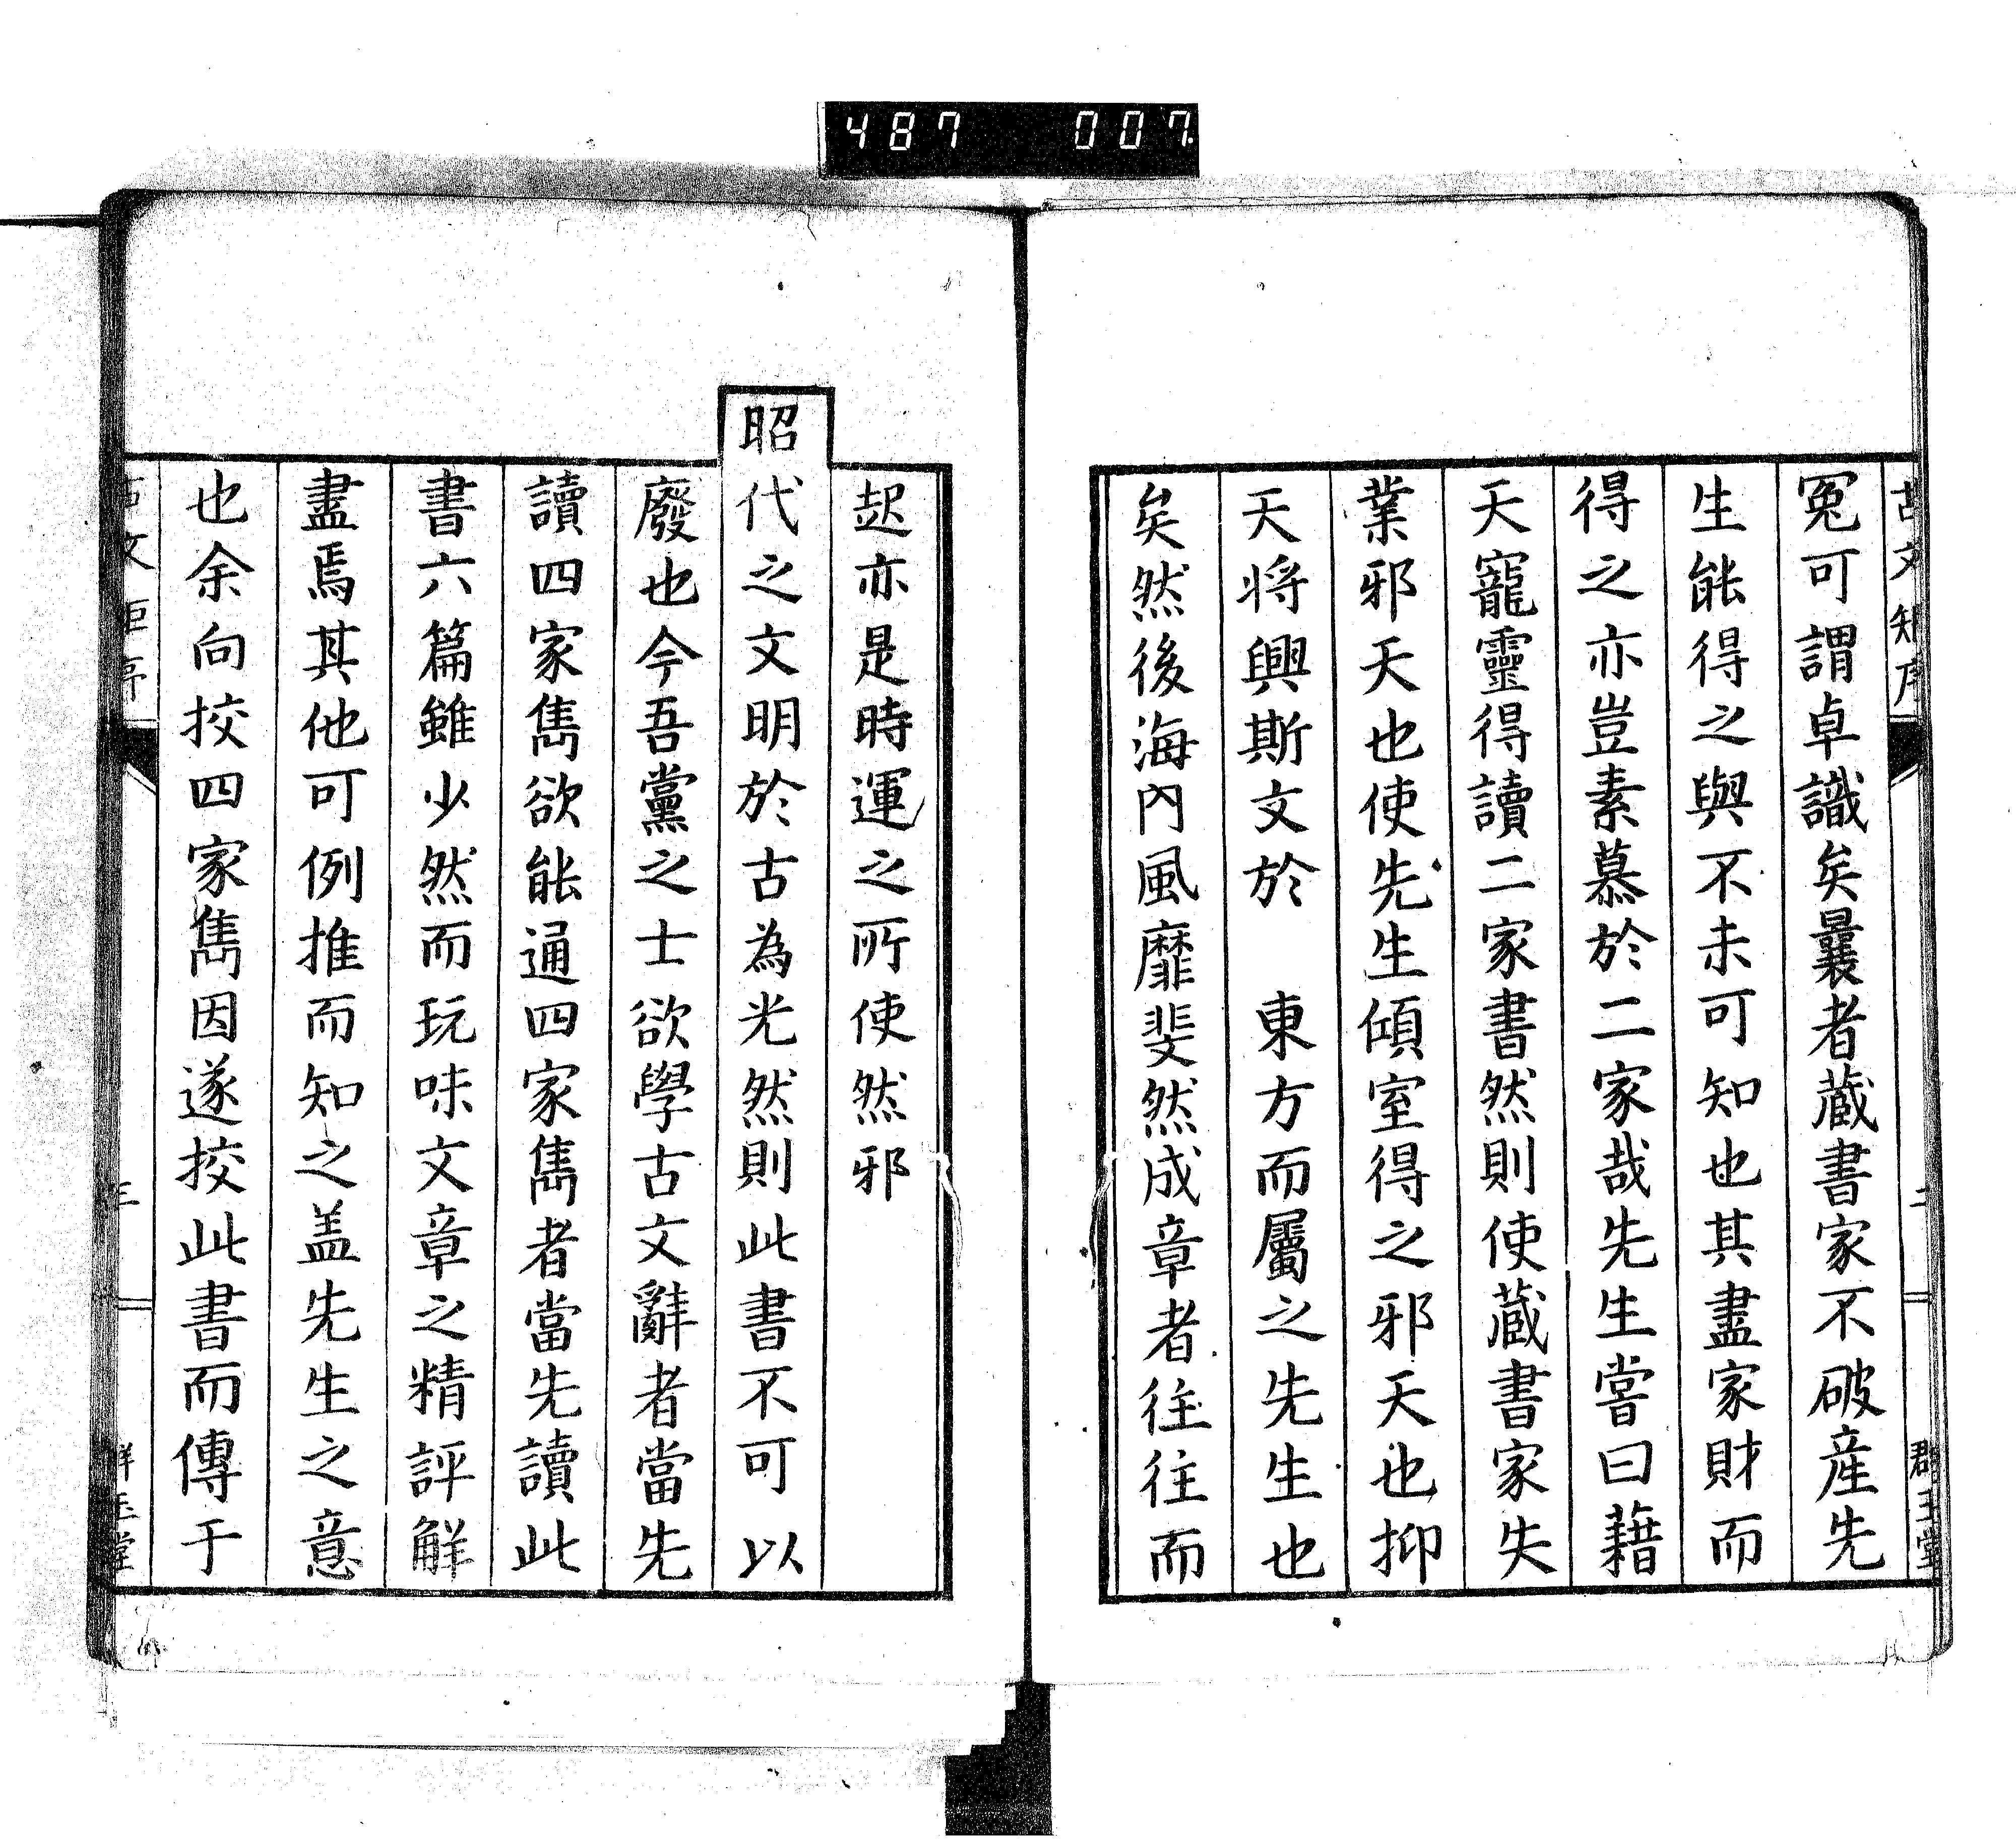 487 007
冤可謂卓識矣曩者蔵書家不破産先
生能得之與不未可知也其盡家財而
得之亦豈素慕於二家哉先生嘗曰藉
天寵靈得讀二家書然則使蔵書家失
業邪天也使先生傾室得之邪天也抑
天将興斯文於　東方而屬之先生也
矣然後海內風靡斐然成章者往往而
起亦是時運之所使然邪
昭代之文明於古為光然則此書不可以
廢也今吾黨之士欲學古文辭者當先
讀四家雋欲能通四家雋者當先讀此
書六篇雖少然而玩味文章之精評解
盡焉其他可例推而知之盖先生之意
也余向挍四家雋因遂挍此書而傳于